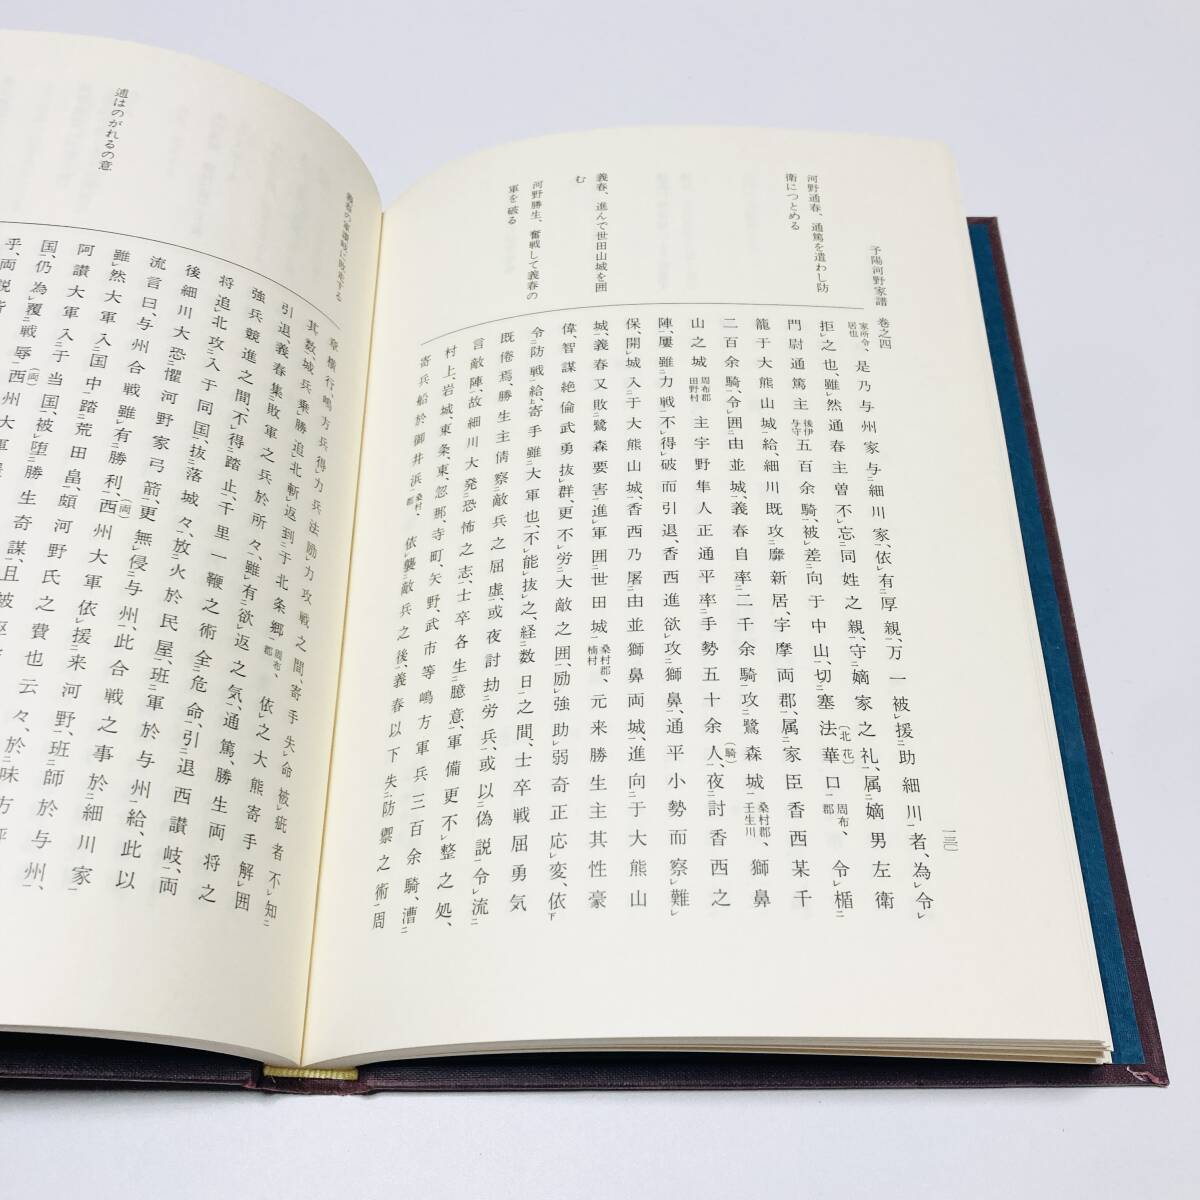 予陽河野家譜 巻之四
一三〇
河野通春、通篤を遣わし防
衛につとめる
義春、進んで世田山城を囲
む
河野勝生、奮戦して義春の
軍を破る
家所令、是乃与州家与細川家、依有厚親、万一被援助細川者、為令
居也
拒之也、雖然通春主曽不忘同姓之親、守嫡家之礼、属嫡男左衛
門尉通篤主後伊与守五百余騎、被差向于中山、切塞法華口(北花)周布郡、令楯
籠于大熊山城給、細川既攻靡新居、宇摩両郡、属家臣香西某千
二百余騎、令囲由並城、義春自率二千余騎攻鷺森城桑村郡壬生川、獅鼻
山之城周布郡田野村主宇野隼人正通平率手勢五十余人(騎)、夜討香西之
陣、屡雖力戦不得破而引退、香西進欲攻獅鼻、通平小勢而察難
保、開城入于大熊山城、香西乃屠由並獅鼻両城、進向于大熊山
城、義春又敗鷺森要害進軍囲世田城桑村郡楠村、元来勝生主其性豪
偉、智謀絶倫武勇抜群、更不労大敵之囲、励強助弱奇正応変、依
令防戦給、寄手雖大軍也、不能抜之、経数日之間、士卒戦屈勇気
既倦焉、勝生主倩察敵兵之屈虚、或夜討劫労兵、或以偽説令流
言敵陣、故細川大発恐怖之志、士卒各生臆意、軍備更不整之処、
村上、岩城、東条、東、忽那、寺町、矢野、武市等嶋方軍兵三百余騎、漕
寄兵船於御井浜桑村郡、依襲敵兵之後、義春以下失防禦之術、周
章横行、嶋方兵得力兵法励力攻戦之間、寄手失命被疵者不知
其数、城兵乗勝追北斬返到于北条郷周布郡、依之大熊寄手解囲
引退、義春集敗軍之兵於所々、雖有欲返之気、通篤、勝生両将之
強兵競進之間、不得踏止、千里一鞭之術全危命引退西讃岐、両
将追北攻入于同国、抜落城々、放火於民屋、班軍於与州給、此以
後細川大恐懼河野家弓箭、更無侵与州、此合戦之事於細川家
流言曰、与州合戦雖有勝利、西州(両)大軍依援来河野、班師於与州、
雖然大軍入国中踏荒田畠、頗河野氏之費也云々、於味方評
阿讃大軍入于当国、被堕勝生奇謀、且被
国、仍為覆戦辱、西(両)州大軍
乎、両説皆
義春の軍讃岐に敗走する
遁はのがれるの意